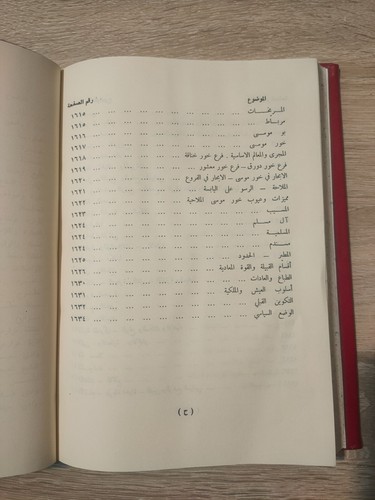 الموضوع رقم الصفحة
المريخات ... ... ... ... ... ... ... ... ١٦١٥
مرباط ... ... ... ... ... ... ... ... ١٦١٥
بو موسى ... ... ... ... ... ... ... ... ١٦١٦
خور موسى ... ... ... ... ... ... ... ... ١٦١٧
المجرى والمعالم الاساسية . فرع خور غنافة ... ... ... ١٦١٨
فرع خور دورق – فرع خور معشور ... ... ... ... ١٦١٩
الابحار في خور موسى – الابحار في الفروع ... ... ... ١٦٢٠
الملاحة – الرسو على اليابسة ... ... ... ... ... ١٦٢١
مميزات وعيوب خور موسى الملاحية ... ... ... ... ١٦٢٢
المسيب ... ... ... ... ... ... ... ... ١٦٢٣
آل مسلم ... ... ... ... ... ... ... ... ١٦٢٤
المسلمية ... ... ... ... ... ... ... ... ١٦٢٤
مسندم ... ... ... ... ... ... ... ... ١٦٢٤
المطير – الحدود ... ... ... ... ... ... ... ١٦٢٥
أقسام القبيلة والقوة العددية ... ... ... ... ... ١٦٢٦
الطباع والعادات ... ... ... ... ... ... ... ١٦٣٠
أسلوب العيش والملكية ... ... ... ... ... ... ١٦٣١
التكوين القبلي ... ... ... ... ... ... ... ١٦٣٢
الوضع السياسي ... ... ... ... ... ... ... ١٦٣٤
( ح )